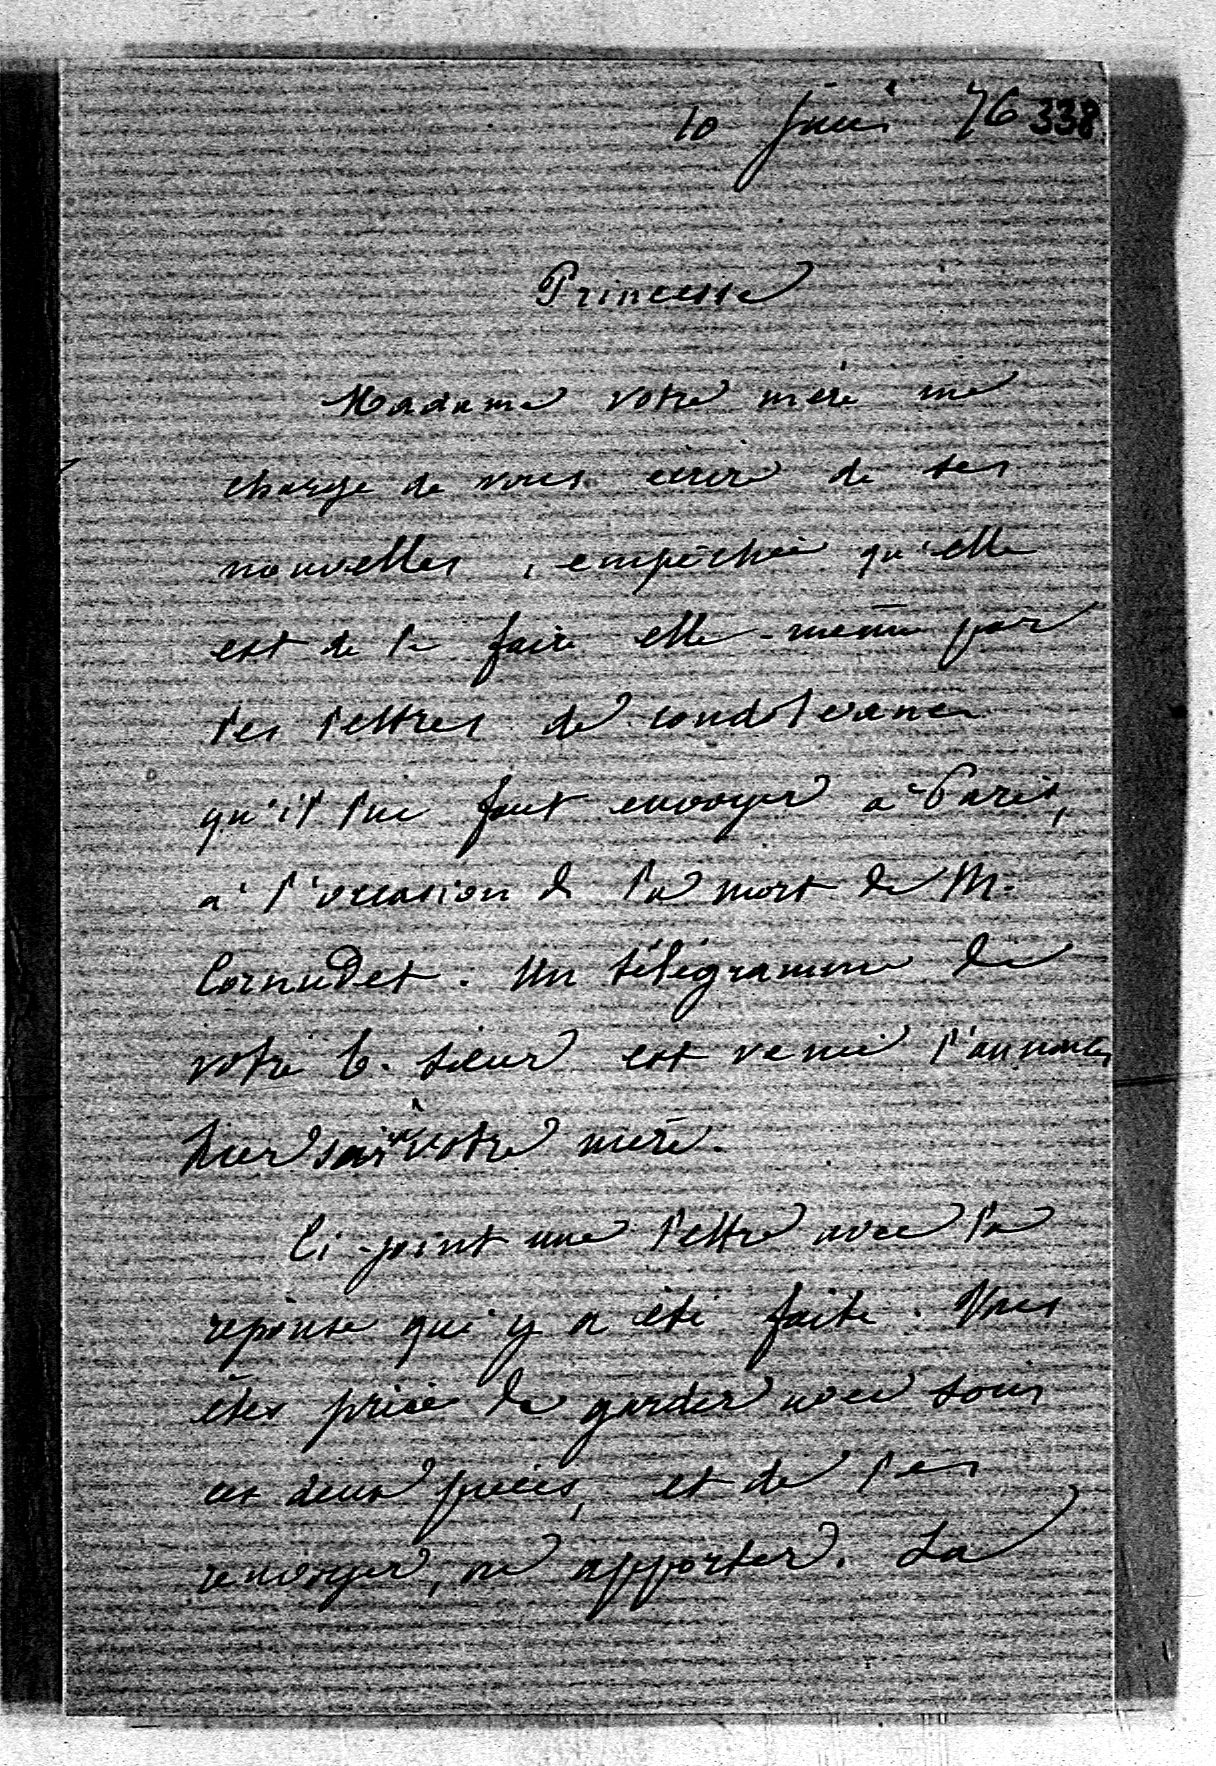 10 juin 76 338
Princesse
Madame votre mère me
charge de vous écrire de ses
nouvelles, empêchée qu'elle
est de le faire elle-même par
les lettres de condoléance
qu'il lui faut envoyer à Paris,
à l'occasion de la mort de M.
Cornudet. Un télégramme de
votre b. sœur est venu l'annoncer
hier soir à votre mère.
Ci-joint une lettre avec la
réponse qui y a été faite. Vous
êtes priée de garder avec soin
ces deux pièces, et de les
renvoyer, ou apporter. La